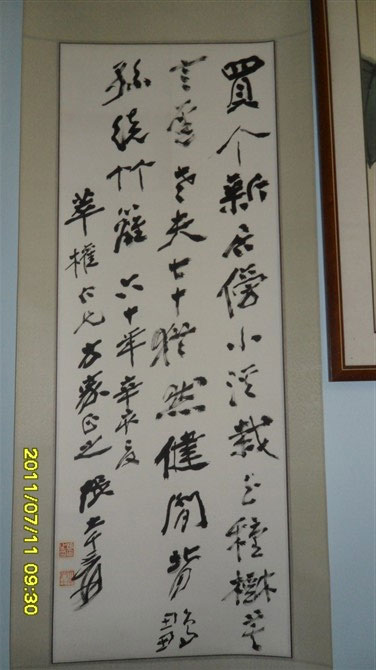 買个新居傍小溪栽花種樹
言老夫七十猶然健閒背
孫繞竹籬 六十年辛亥夏
華權仁兄方家正之 張大千爰
2011/07/11 09:30